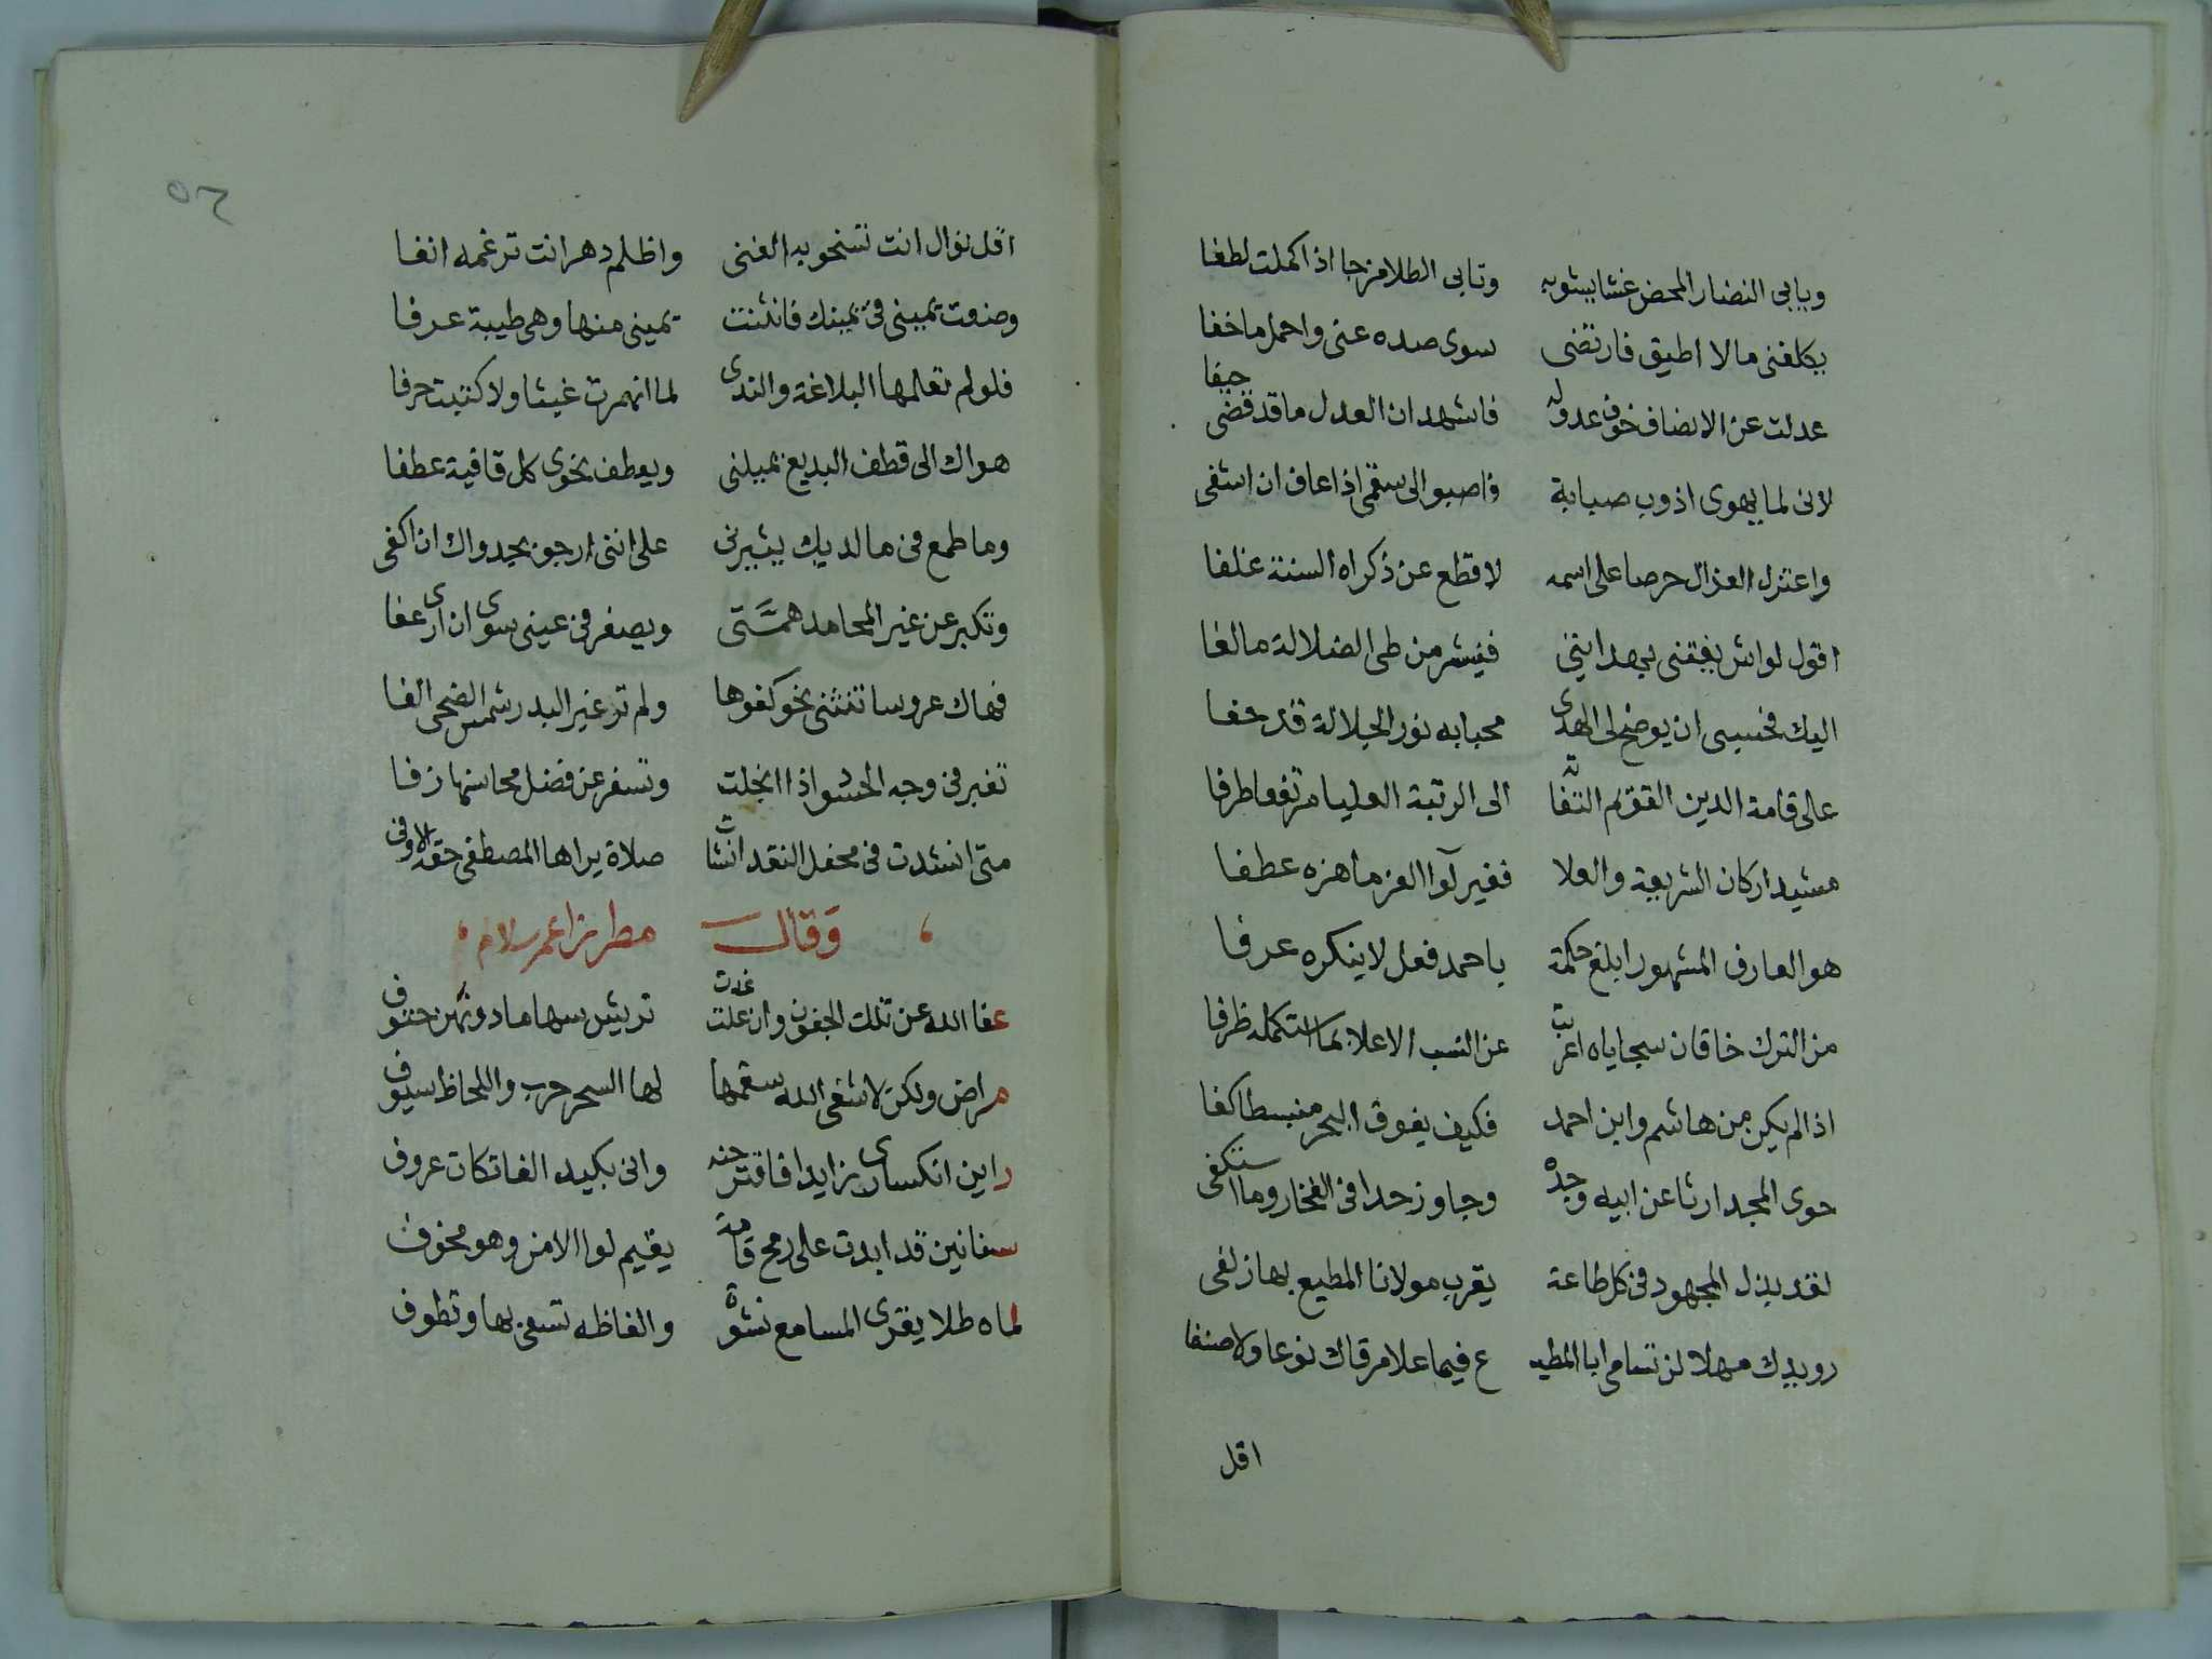 ويابى النضار المحض غشا يشوبه وتابى الطلا مزجا اذا كملت لطفا
يكلفنى مالا اطيق فارتضى سوى صده عنى واحمل ما خفا
عدلت عن الانصاف خوف عدوله فاشهد ان العدل ما قد قضى حيفا
لانى لما يهوى اذوب صبابة واصبوا الى سقمى اذا عاف ان اشفى
واعتزل العذال حرصا على اسمه لاقطع عن ذكراه السنة غلفا
اقول لواش يفتنى بهدايتى فينشر من طى الضلالة ما لفا
اليك فحسبى ان يوضح لى الهدى محيا به نور الجلالة قد حفا
على قامة الدين القويم التفاته الى الرتبة العليا مرتفعا طرفا
مشيد اركان الشريعة والعلا فغير لوا العز ما هزه عطفا
هو العارف المشهور ابلغ حكمة باحمد فعل لا ينكره عرفا
من الترك خاقان سجاياه اعربت عن النسب الاعلا بما استكمله ظرفا
اذا لم يكن من هاشم وابن احمد فكيف يفوق البحر منبسطا كفا
حوى المجد ارثا عن ابيه وجده وجاوز حدا فى الفخار وما استكفى
لقد بذل المجهود فى كل طاعة يقرب مولانا المطيع بها زلفى
رويدك مهلا لن تسامى ابا المطيـ ـع فيما علا مرقاك نوعا ولا صنفا
اقل
٥٦
اقل نوال انت تسخو به الغنى واظلم دهر انت ترغمه انفا
وضعت يمينى فى يمينك فانثنت يمينى منها وهى طيبة عرفا
فلو لم تعلمها البلاغة والندى لما انهمرت غيثا ولا كتبت حرفا
هواك الى قطف البديع يميلنى ويعطف نحوى كل قافية عطفا
وما طمع فى ما لديك يثيرنى على اننى ارجو بجدواك ان اكفى
وتكبر عن غير المحامد همتى ويصغر فى عينى سوى ان ارى عفا
فهاك عروسا تنثنى نحو كفوها ولم تر غير البدر شمس الضحى الفا
تغبر فى وجه الحسود اذا انجلت وتسفر عن فضل محاسنها زفا
متى انشدت فى محفل النقد انشات صلاة يراها المصطفى حقه الاوفى
وقال مطرزا عمر سلام
عفا الله عن تلك الجفون وان غدت تريش سهاما دونهن حتوف
مراض ولكن لا شفى الله سقمها لها السحر حرب واللحاظ سيوف
راين انكسارى زايدا فاقترحنه وانى بكيد الفاتكات عروف
سنانين قد ابدت على رمح قامة يقيم لوا الامن وهو مخوف
لماه طلا يقرى المسامع نشوة والفاظه تسعى بها وتطوف